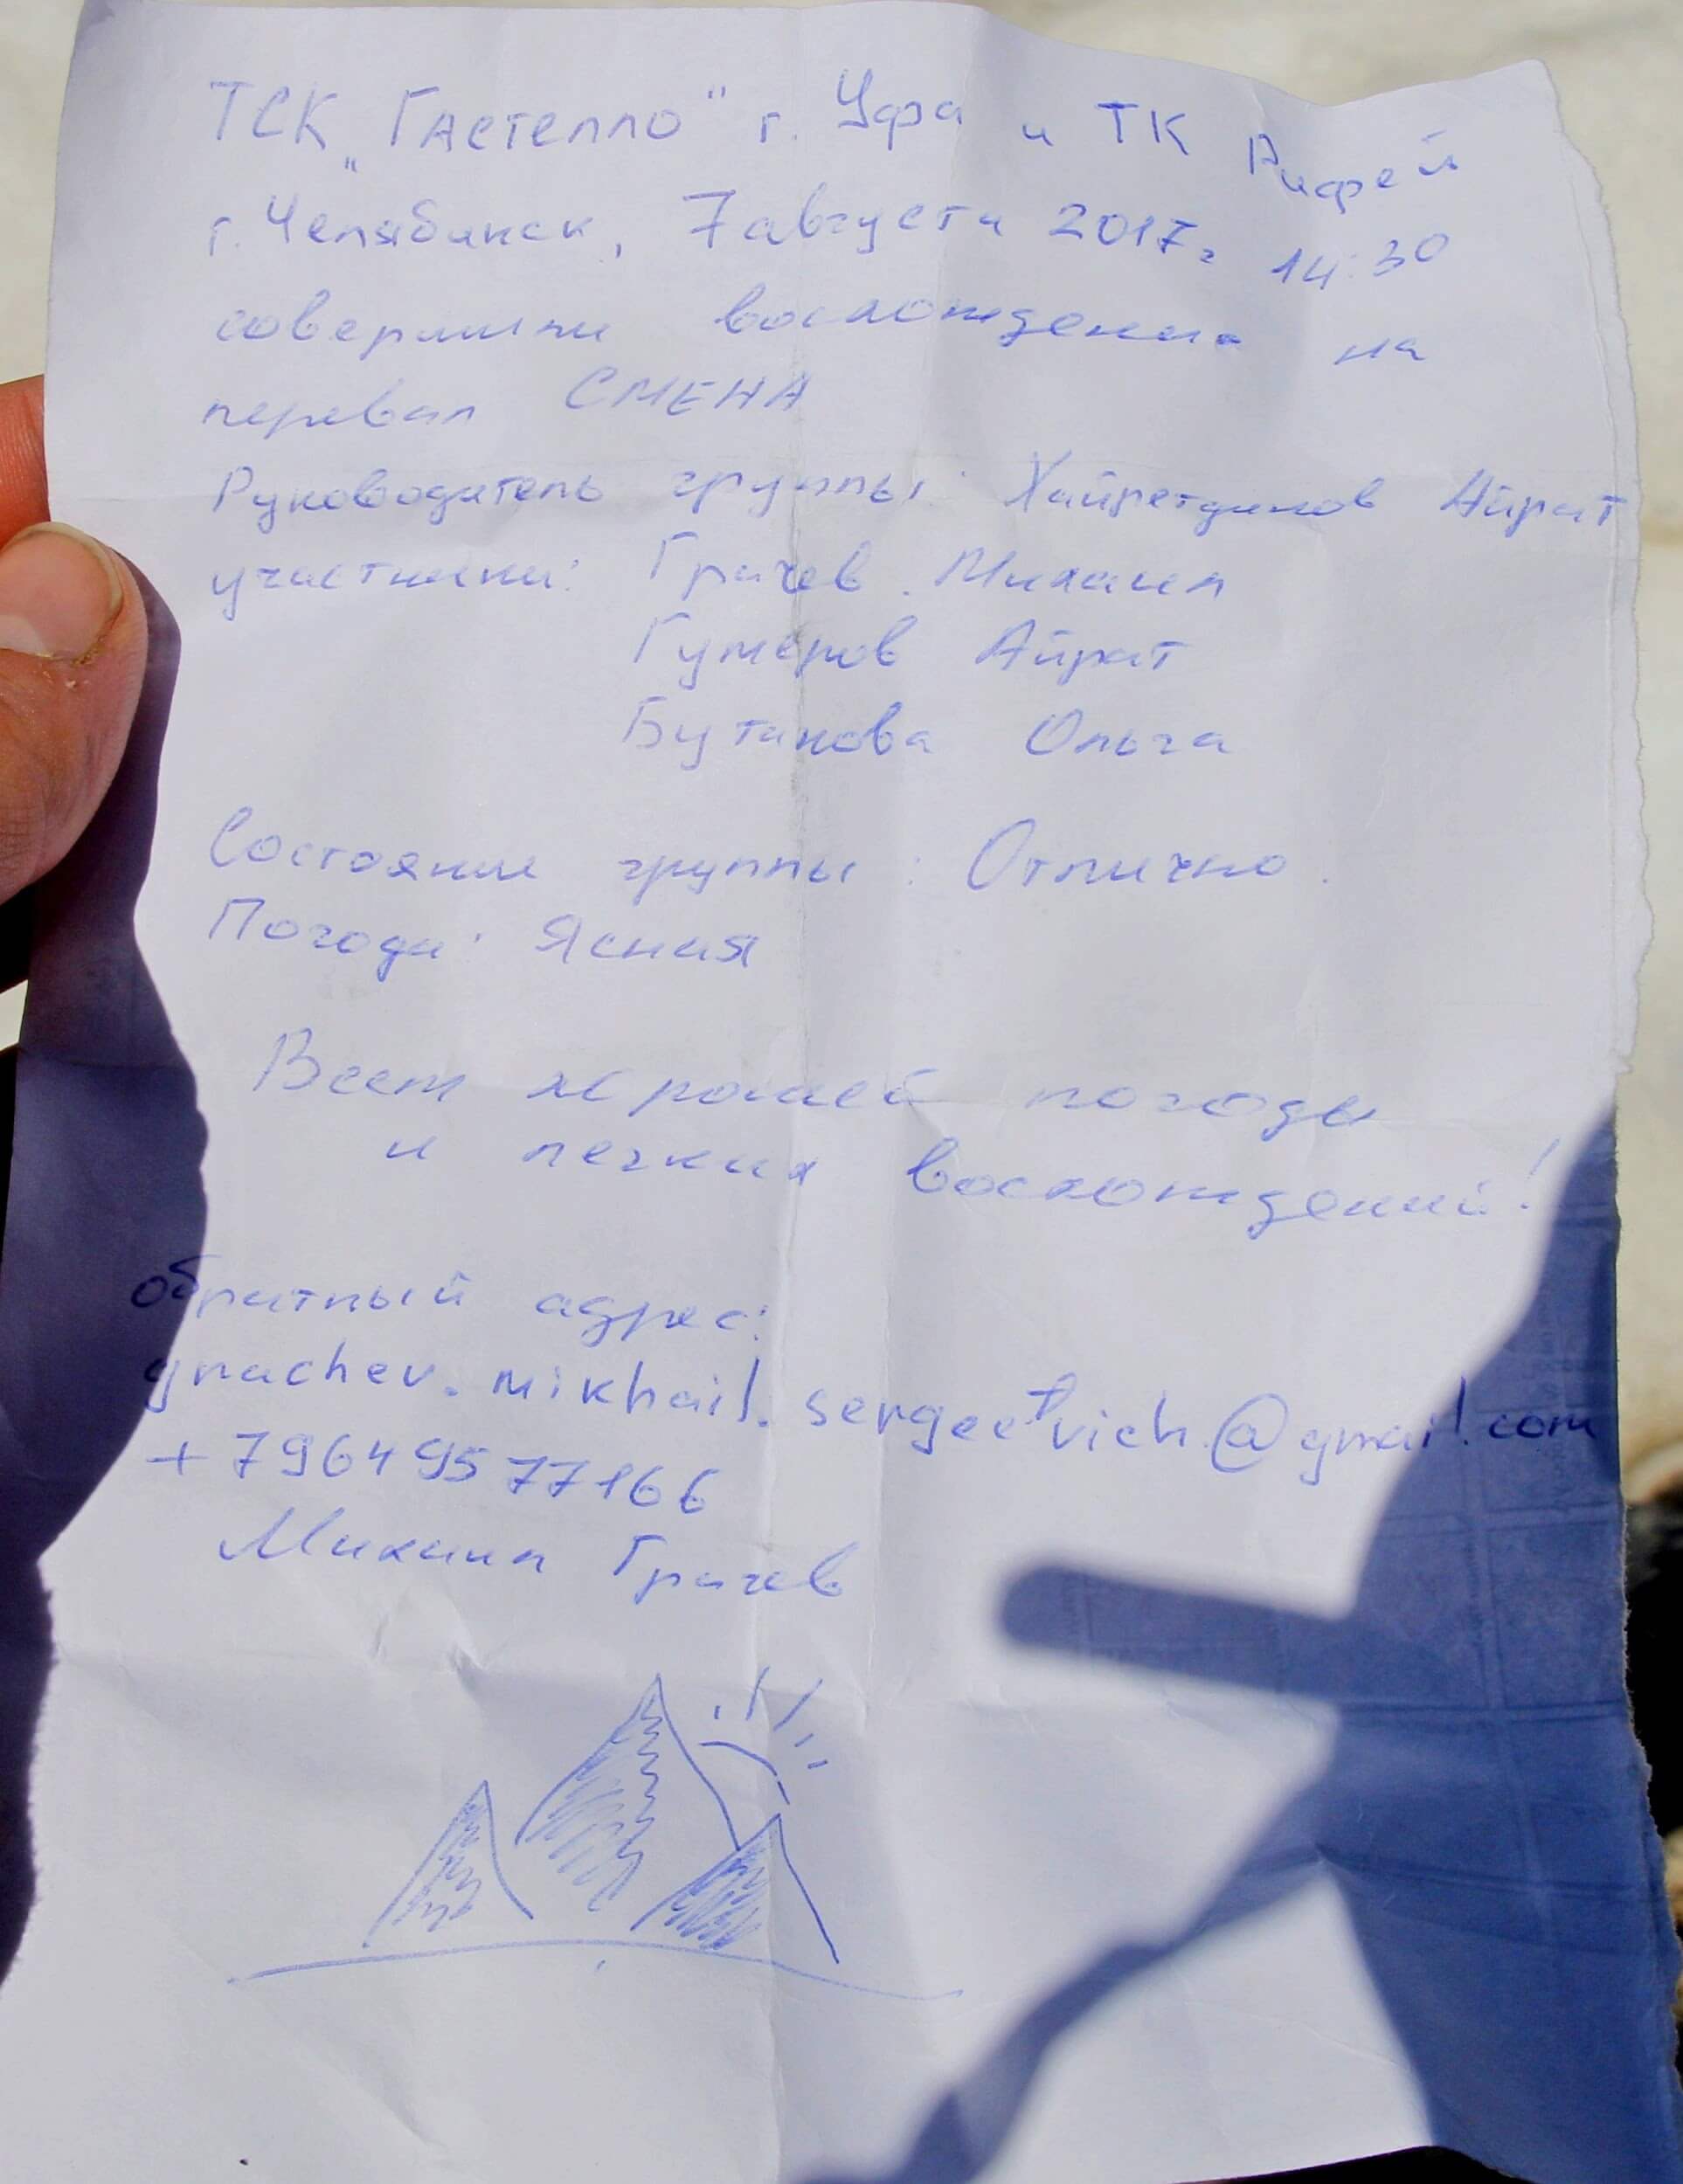 ТСК „Гастелло" г. Уфа и ТК Рифей
г. Челябинск, 7 августа 2017г 14:30
совершили восхождение на
перевал СМЕНА
Руководитель группы: Хайретдинов Айрат
участники: Грачев Михаил
Гумеров Айрат
Бутакова Ольга
Состояние группы: Отлично.
Погода: Ясная
Всем хорошей погоды
и легких восхождений!
обратный адрес:
grachev.mikhail.sergeevich@gmail.com
+79649577166
Михаил Грачев